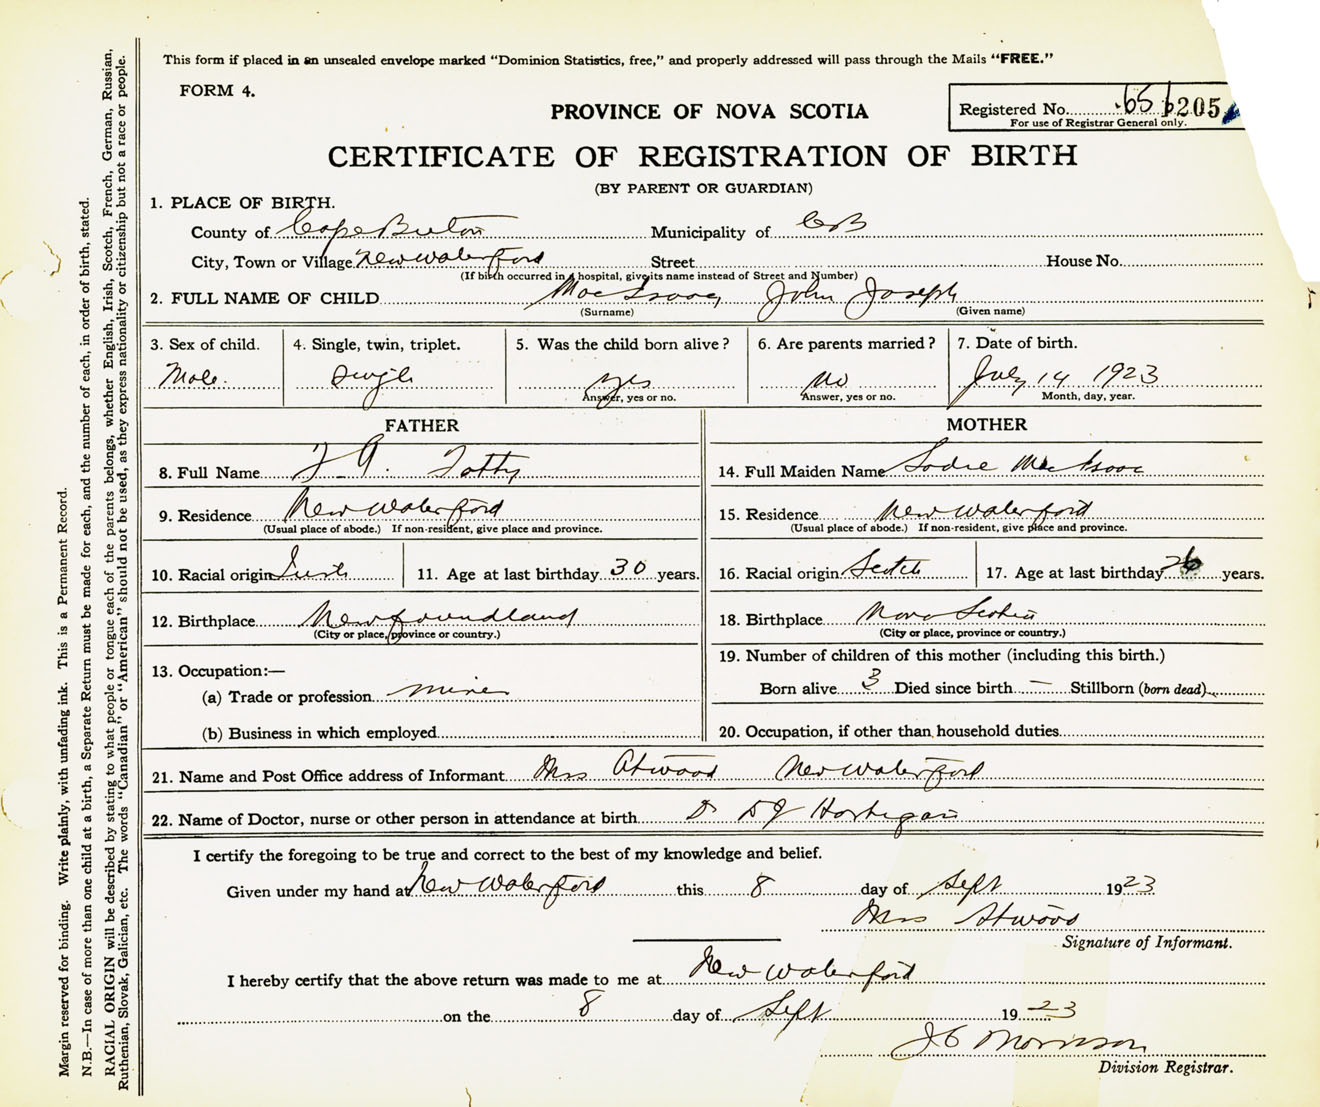 This form if placed in an unsealed envelope marked "Dominion Statistics, free," and properly addressed will pass through the Mails "FREE."
FORM 4.
PROVINCE OF NOVA SCOTIA
Registered No. 205
For use of Registrar General only.
CERTIFICATE OF REGISTRATION OF BIRTH
(BY PARENT OR GUARDIAN)
1. PLACE OF BIRTH.
County of Cape Breton Municipality of CB
City, Town or Village New Waterford Street House No.
(If birth occurred in a hospital, give its name instead of Street and Number)
2. FULL NAME OF CHILD MacIsaac John Joseph
(Surname) (Given name)
3. Sex of child. 4. Single, twin, triplet. 5. Was the child born alive? 6. Are parents married? 7. Date of birth.
Male. Single yes no July 14 1923
Answer, yes or no. Answer, yes or no. Month, day, year.
FATHER MOTHER
8. Full Name 14. Full Maiden Name Sadie MacIsaac
9. Residence New Waterford 15. Residence New Waterford
(Usual place of abode.) If non-resident, give place and province. (Usual place of abode.) If non-resident, give place and province.
10. Racial origin Irish 11. Age at last birthday 30 years. 16. Racial origin Scotch 17. Age at last birthday 26 years.
12. Birthplace Newfoundland 18. Birthplace Nova Scotia
(City or place, province or country.) (City or place, province or country.)
13. Occupation:— 19. Number of children of this mother (including this birth.)
(a) Trade or profession miner Born alive 3 Died since birth — Stillborn (born dead)
(b) Business in which employed 20. Occupation, if other than household duties
21. Name and Post Office address of Informant Mrs Atwood New Waterford
22. Name of Doctor, nurse or other person in attendance at birth Dr
I certify the foregoing to be true and correct to the best of my knowledge and belief.
Given under my hand at New Waterford this 8 day of Sept 1923
Mrs Atwood
Signature of Informant.
I hereby certify that the above return was made to me at New Waterford
on the 8 day of Sept 1923
Morrison
Division Registrar.
Margin reserved for binding. Write plainly, with unfading ink. This is a Permanent Record.
N.B.—In case of more than one child at a birth, a Separate Return must be made for each, and the number of each, in order of birth, stated.
RACIAL ORIGIN will be described by stating to what people or tongue each of the parents belongs, whether English, Irish, Scotch, French, German, Russian,
Ruthenian, Slovak, Galician, etc. The words "Canadian" or "American" should not be used, as they express nationality or citizenship but not a race or people.